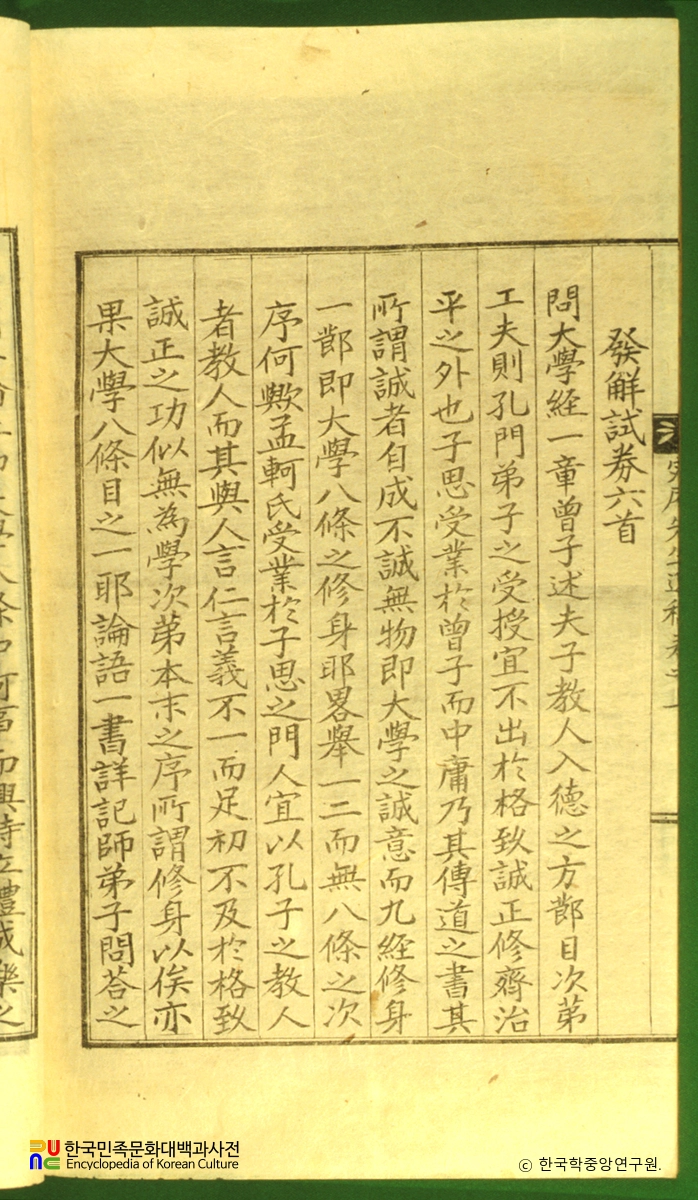 發解試券六首
問大學經一章曾子述夫子教人入德之方節目次第
工夫則孔門弟子之受授宜不出於格致誠正修齊治
平之外也子思受業於曾子而中庸乃其傳道之書其
所謂誠者自成不誠無物即大學之誠意而九經修身
一節即大學八條之修身耶畧舉一二而無八條之次
序何歟孟軻氏受業於子思之門人宜以孔子之教人
者教人而其與人言仁言義不一而足初不及於格致
誠正之功似無為學次第本末之序所謂修身以俟亦
果大學八條目之一耶論語一書詳記師弟子問荅之
한국민족문화대백과사전
Encyclopedia of Korean Culture
© 한국학중앙연구원.